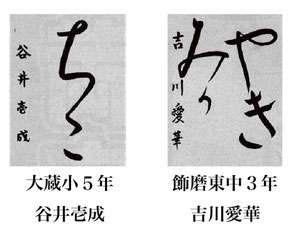 谷井壱成
大蔵小5年
谷井壱成
やき
吉川愛華
飾磨東中3年
吉川愛華